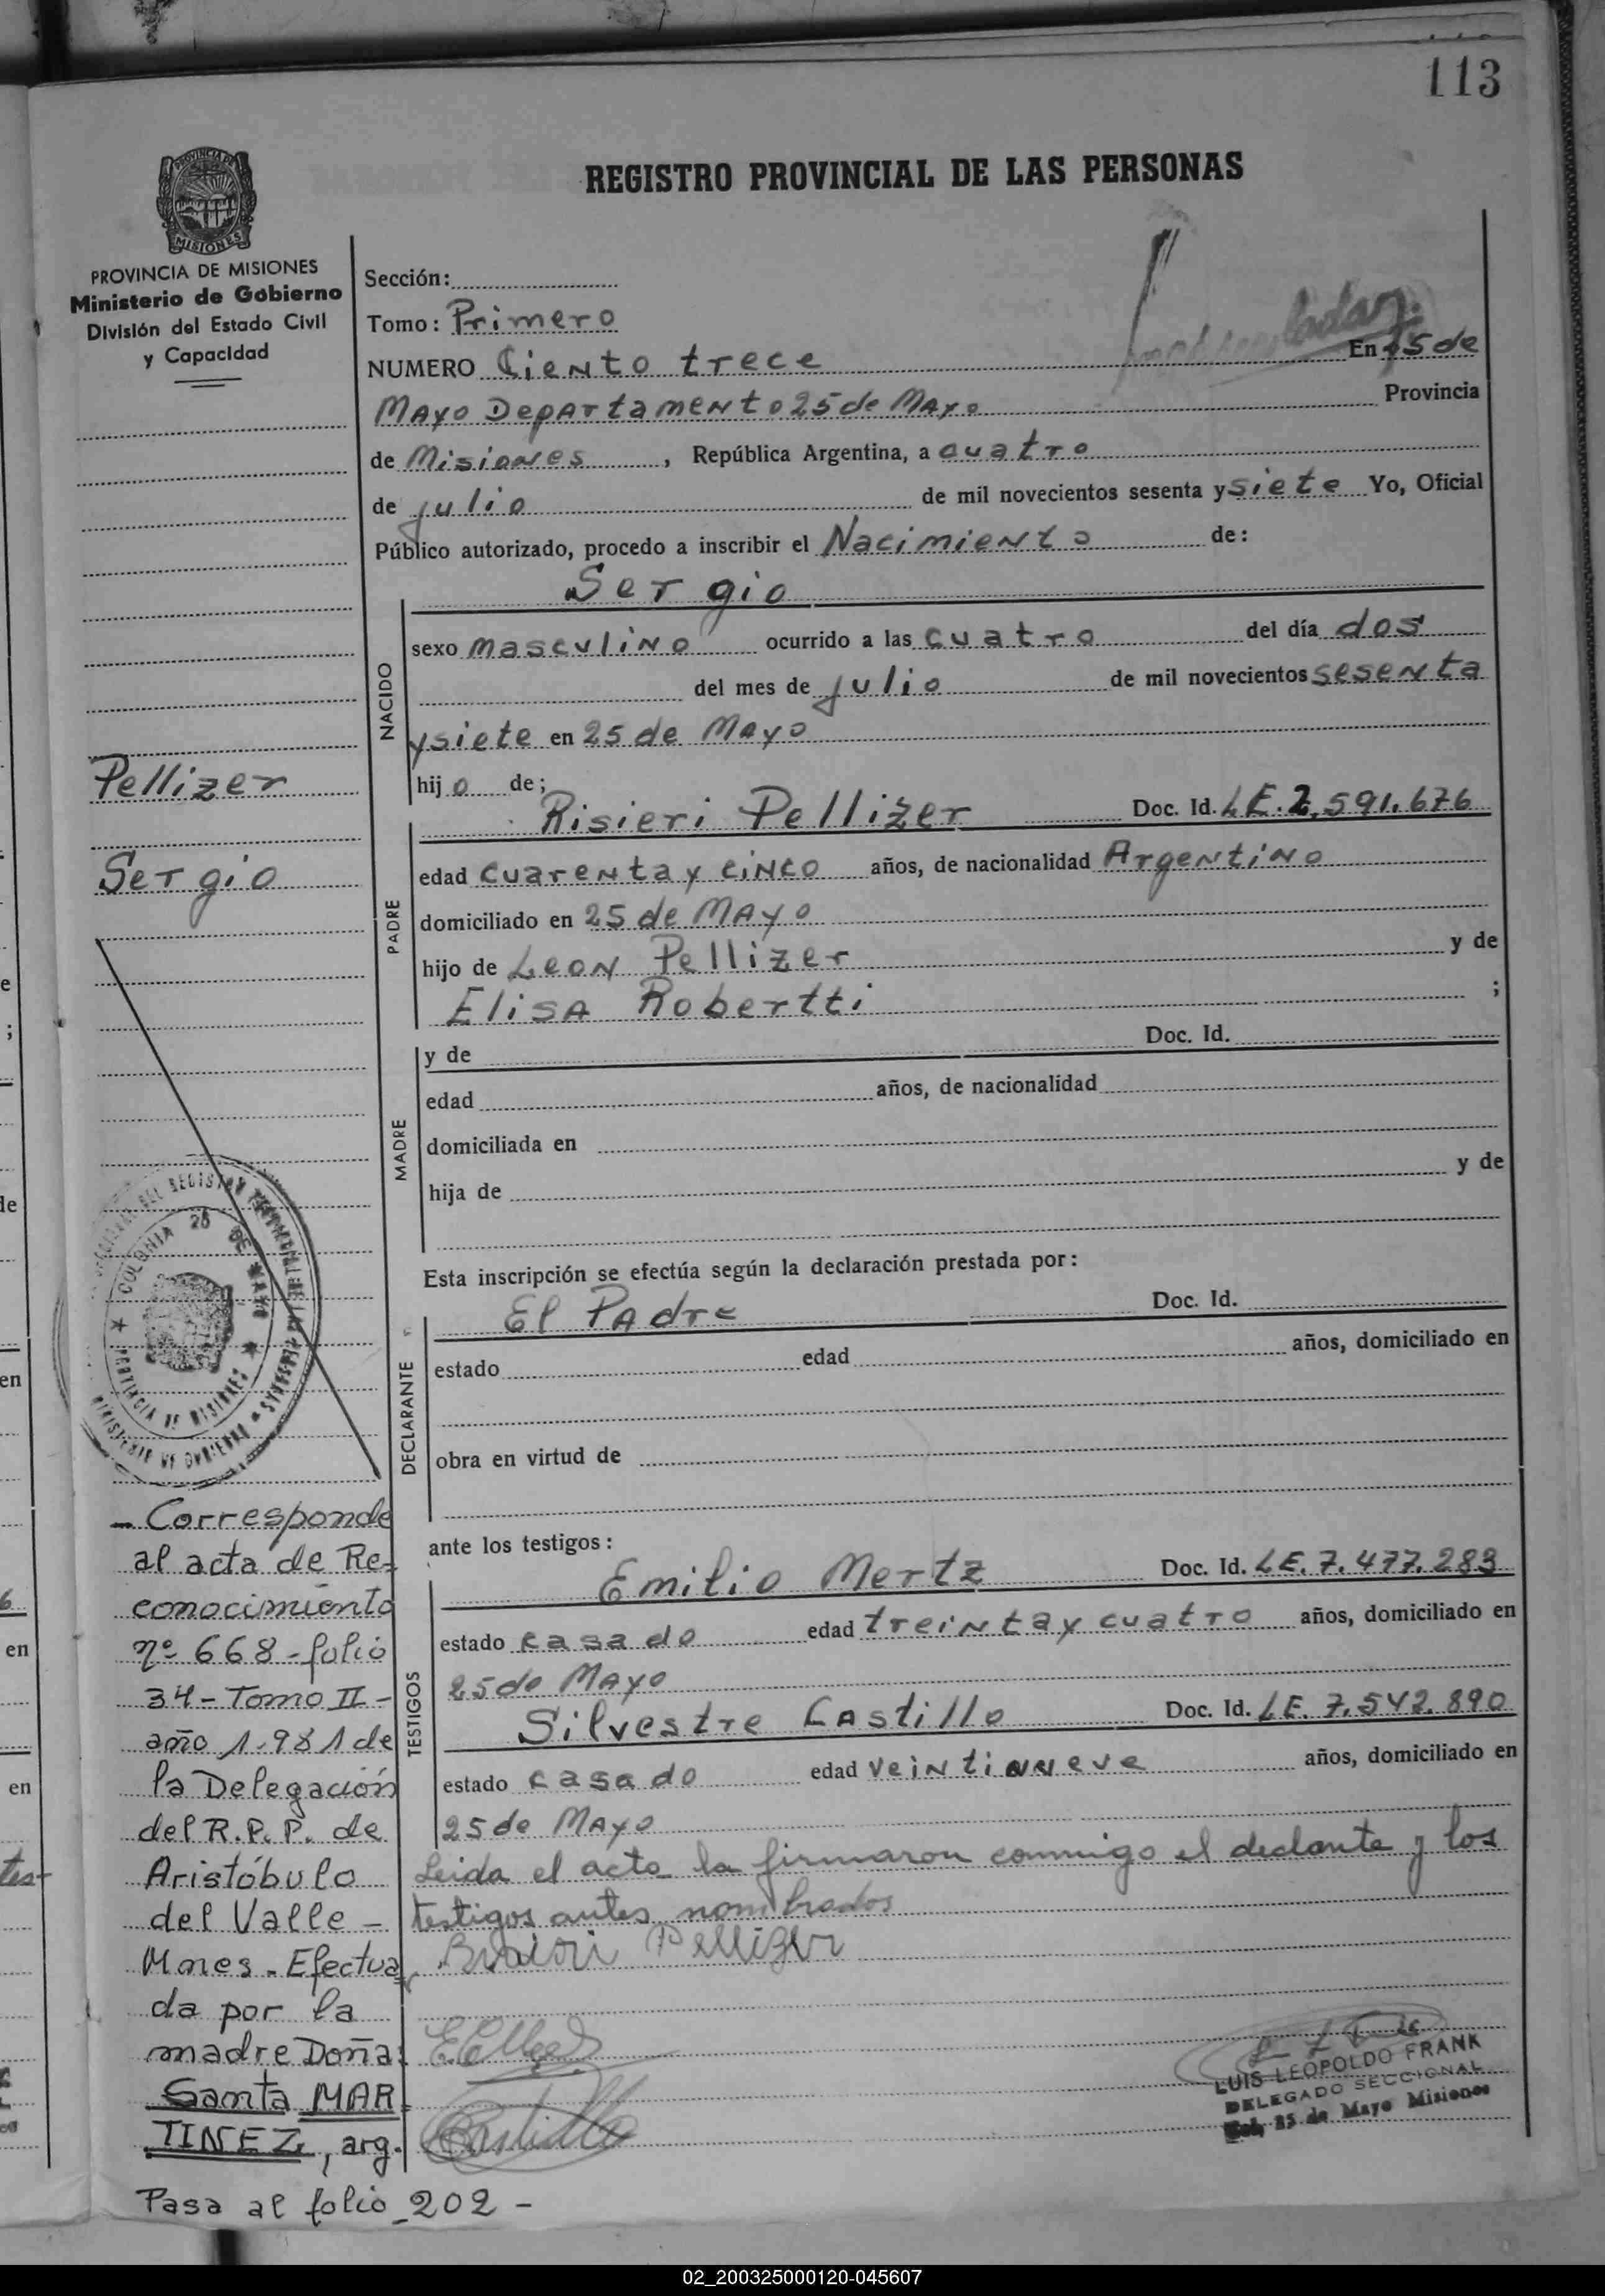 113
REGISTRO PROVINCIAL DE LAS PERSONAS
PROVINCIA DE
MISIONES
PROVINCIA DE MISIONES
Ministerio de Gobierno
División del Estado Civil
y Capacidad
Sección:
Tomo: Primero
NUMERO Ciento trece En 25 de
Mayo Departamento 25 de Mayo Provincia
de Misiones, República Argentina, a cuatro
de julio de mil novecientos sesenta y siete Yo, Oficial
Público autorizado, procedo a inscribir el Nacimiento de:
Sergio
NACIDO
sexo masculino ocurrido a las cuatro del día dos
del mes de julio de mil novecientos sesenta
y siete en 25 de Mayo
hijo de;
Pellizer
Sergio
PADRE
Risieri Pellizer Doc. Id. LE. 2.591.676
edad cuarenta y cinco años, de nacionalidad Argentino
domiciliado en 25 de Mayo
hijo de Leon Pellizer y de
Elisa Robertti ;
MADRE
y de Doc. Id.
edad años, de nacionalidad
domiciliada en
hija de y de
Esta inscripción se efectúa según la declaración prestada por:
DECLARANTE
El Padre Doc. Id.
estado edad años, domiciliado en
obra en virtud de
COLONIA 25 DE MAYO
PROVINCIA DE MISIONES
MINISTERIO DE GOBIERNO
ante los testigos:
TESTIGOS
Emilio Mertz Doc. Id. LE. 7.477.283
estado casado edad treinta y cuatro años, domiciliado en
25 de Mayo
Silvestre Castillo Doc. Id. LE. 7.542.890
estado casado edad veintinueve años, domiciliado en
25 de Mayo
Leida el acta la firmaron conmigo el declante y los
testigos antes nombrados
Pellizer
LUIS LEOPOLDO FRANK
DELEGADO SECCIONAL
Col. 25 de Mayo Misiones
- Corresponde
al acta de Re-
conocimiento
nº 668 - folio
34 - Tomo II -
año 1.981 de
la Delegación
del R.P.P. de
Aristóbulo
del Valle -
Mnes. - Efectua
da por la
madre Doña:
Santa MAR
TINEZ, arg.
Pasa al folio 202 -
02_200325000120-045607